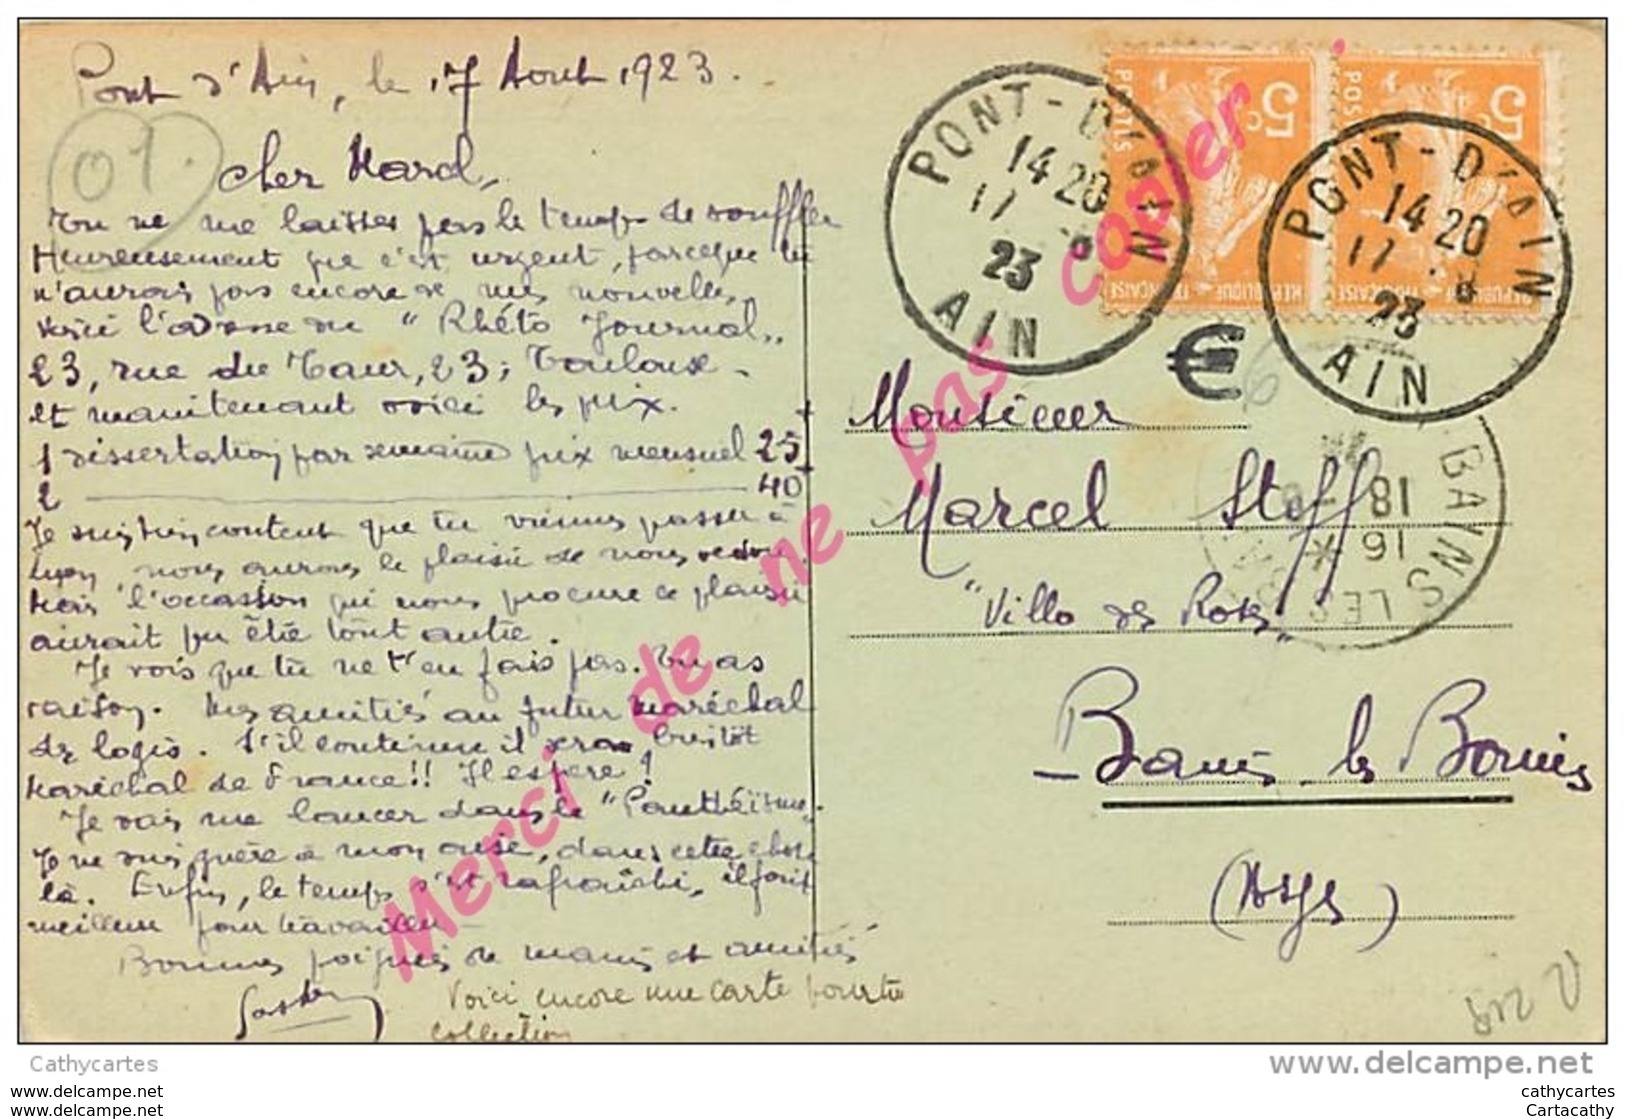 Pont d'Ain, le 17 Aout 1923.
01.
cher Marcel,
Tu ne me laisses pas le temps de souffler
Heureusement que c'est urgent, parceque tu
n'aurais pas encore de mes nouvelles,
voici l'adresse du "Rhéto Journal"
23, rue du Taur, 23; Toulouse.
et maintenant voici les prix.
1 dissertation par semaine prix mensuel 25
2 ———— 40
Je suis très content que tu viennes passer à
Lyon, nous aurons le plaisir de nous revoir
Mais l'occasion qui nous procure ce plaisir
aurait pu être tout autre.
Je vois que tu ne t'en fais pas. Tu as
raison. Mes amitiés au futur maréchal
des logis. S'il continue il sera bientôt
Maréchal de France!! Il espère!
Je vais me lancer dans le "Panthéisme".
Je ne suis guère à mon aise, dans cette chose
là. Enfin, le temps s'est rafraîchi, il fait
meilleur pour travailler
Bonnes poignées de mains et amitiés
Voici encore une carte pour ta
collection
PONT-D'AIN
14 20
17 8
23
AIN
PONT-D'AIN
14 20
17 8
23
AIN
5c
POSTES
REPUBLIQUE FRANÇAISE
5c
POSTES
REPUBLIQUE FRANÇAISE
€
Monsieur
Marcel Stoff
"Villa des Roses"
Bains les Bains
(Vosges)
BAINS LES
18
16 *
Merci de ne pas copier
Cathycartes
www.delcampe.net
cathycartes
cathycartes
cathycartes
Cartacathy